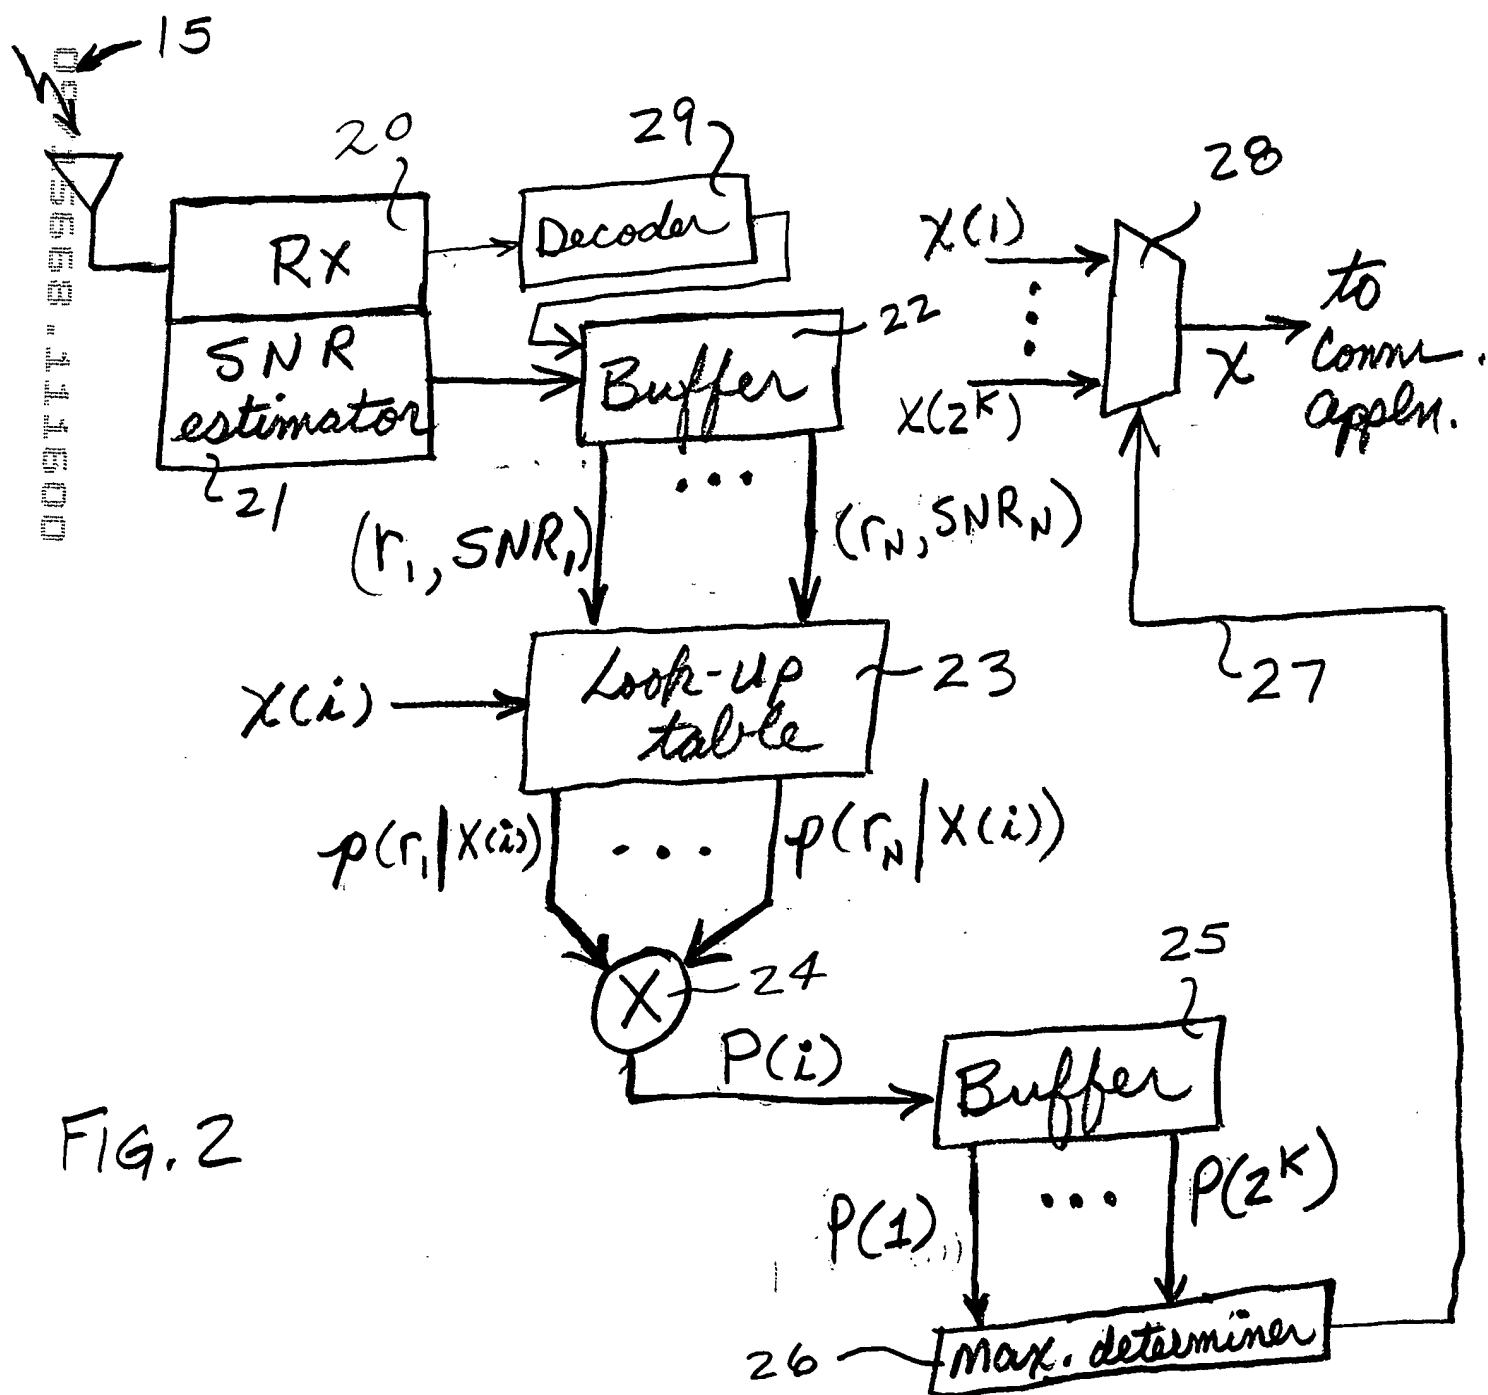 15
20
29
28
Rx
Decoder
X(1)
to
Comm.
appln.
SNR
estimator
Buffer
22
X
X(2^K)
21
(r_1, SNR_1)
(r_N, SNR_N)
X(i)
Look-up
table
23
27
p(r_1|X(i))
p(r_N|X(i))
X
24
25
P(i)
Buffer
FIG. 2
P(1)
P(2^K)
26
Max. determiner